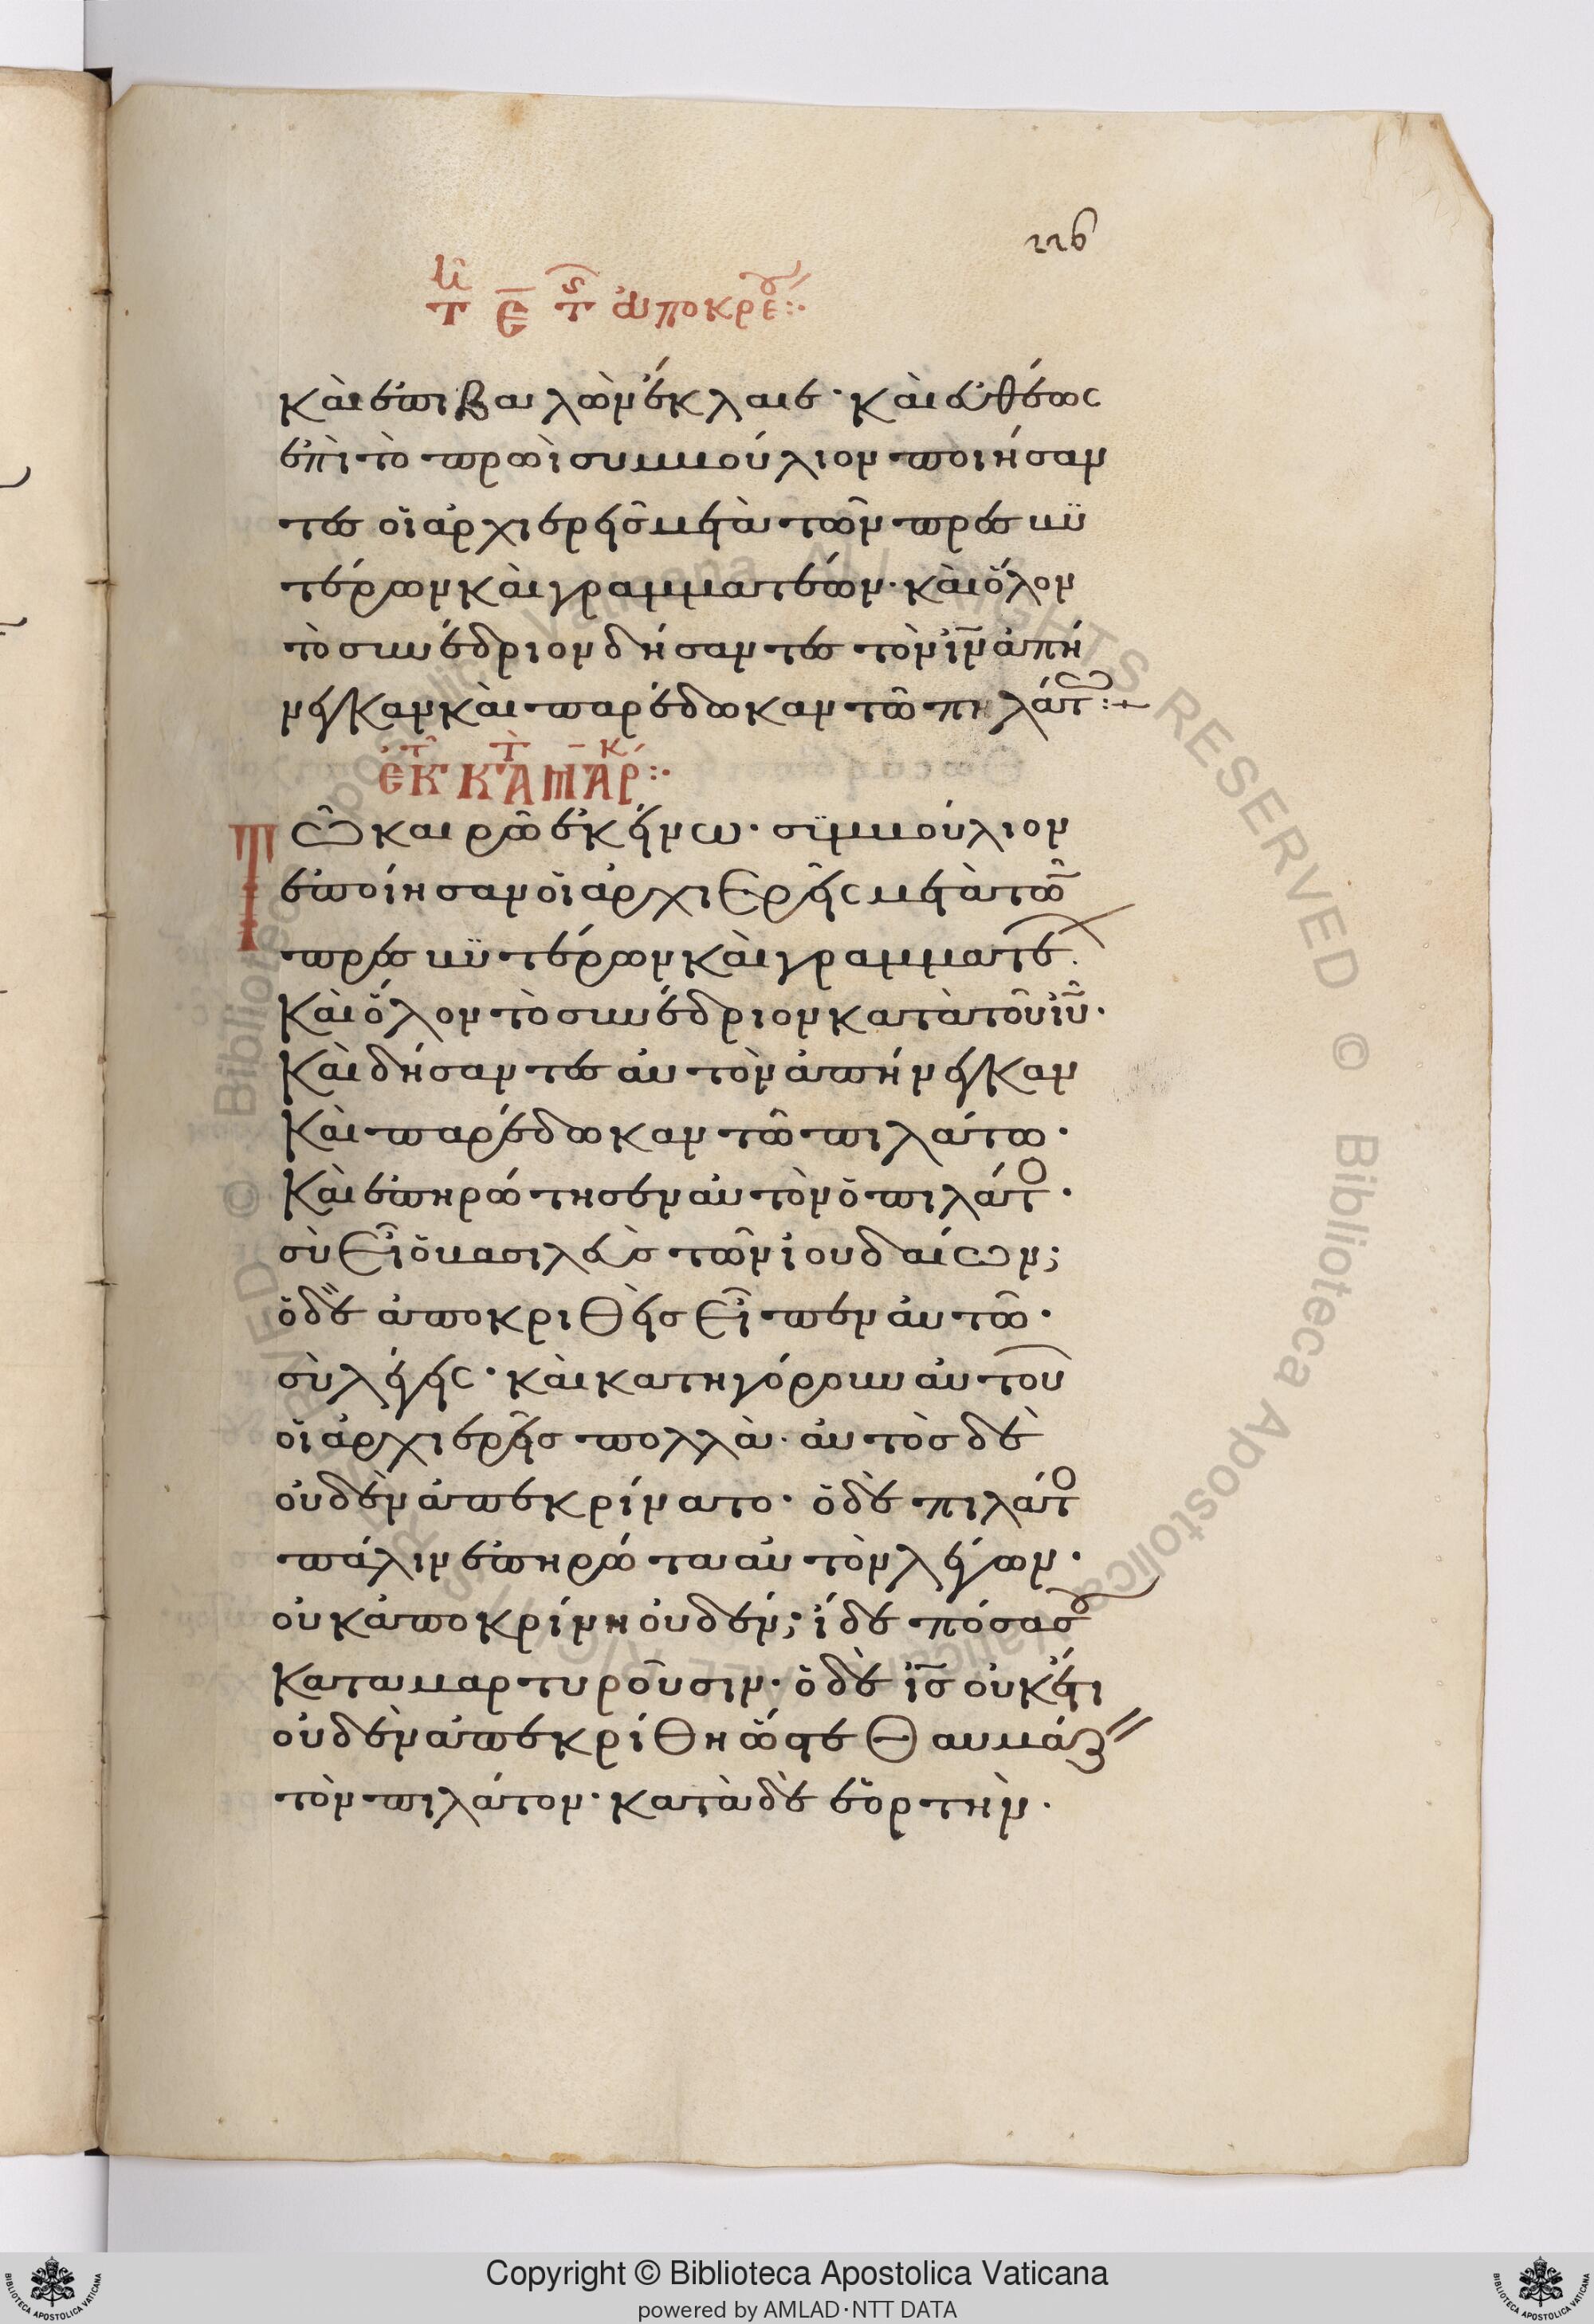 116
τῇ ε̄ τῆς ἀποκρέου
καὶ ἐπιβαλὼν ἔκλαιε· καὶ εὐθέως
ἐπὶ τὸ πρωῒ συμβούλιον ποιήσαν
τες οἱ ἀρχιερεῖς μετὰ τῶν πρεσβϋ
τέρων καὶ γραμματέων· καὶ ὅλον
τὸ συνέδριον δήσαντες τὸν ἰν̄ ἀπή
νεγκαν καὶ παρέδωκαν τῶ πιλάτω
ἐκ τοῦ κατὰ μάρκ
Τῶ καιρῶ ἐκείνω· σϋμβούλιον
ἐποίησαν οἱ ἀρχιερεῖς μετὰ τῶν
πρεσβϋτέρων καὶ γραμματέων
καὶ ὅλον τὸ συνέδριον κατὰ τοῦ ἰῦ·
καὶ δήσαντες αὐτὸν ἀπήνεγκαν
καὶ παρέδωκαν τῶ πιλάτω·
καὶ ἐπηρώτησεν αὐτὸν ὁ πιλάτος·
σὺ εἶ ὁ βασιλεὺς τῶν ἰουδαίων;
ὁ δὲ ἀποκριθεὶς εἶπεν αὐτῶ·
σὺ λέγεις· καὶ κατηγόρουν αὐτοῦ
οἱ ἀρχιερεῖς πολλὰ· αὐτὸς δὲ
οὐδὲν ἀπεκρίνατο· ὁ δὲ πιλάτος
πάλιν ἐπηρώτα αὐτὸν λέγων·
οὐκ ἀποκρίνη οὐδέν; ἴδε πόσα σου
καταμαρτυροῦσιν· ὁ δὲ ἰς̄ οὐκέτι
οὐδὲν ἀπεκρίθη ὥστε θαυμάζειν
τὸν πιλάτον· κατὰ δὲ ἑορτὴν·
Copyright © Biblioteca Apostolica Vaticana
powered by AMLAD·NTT DATA